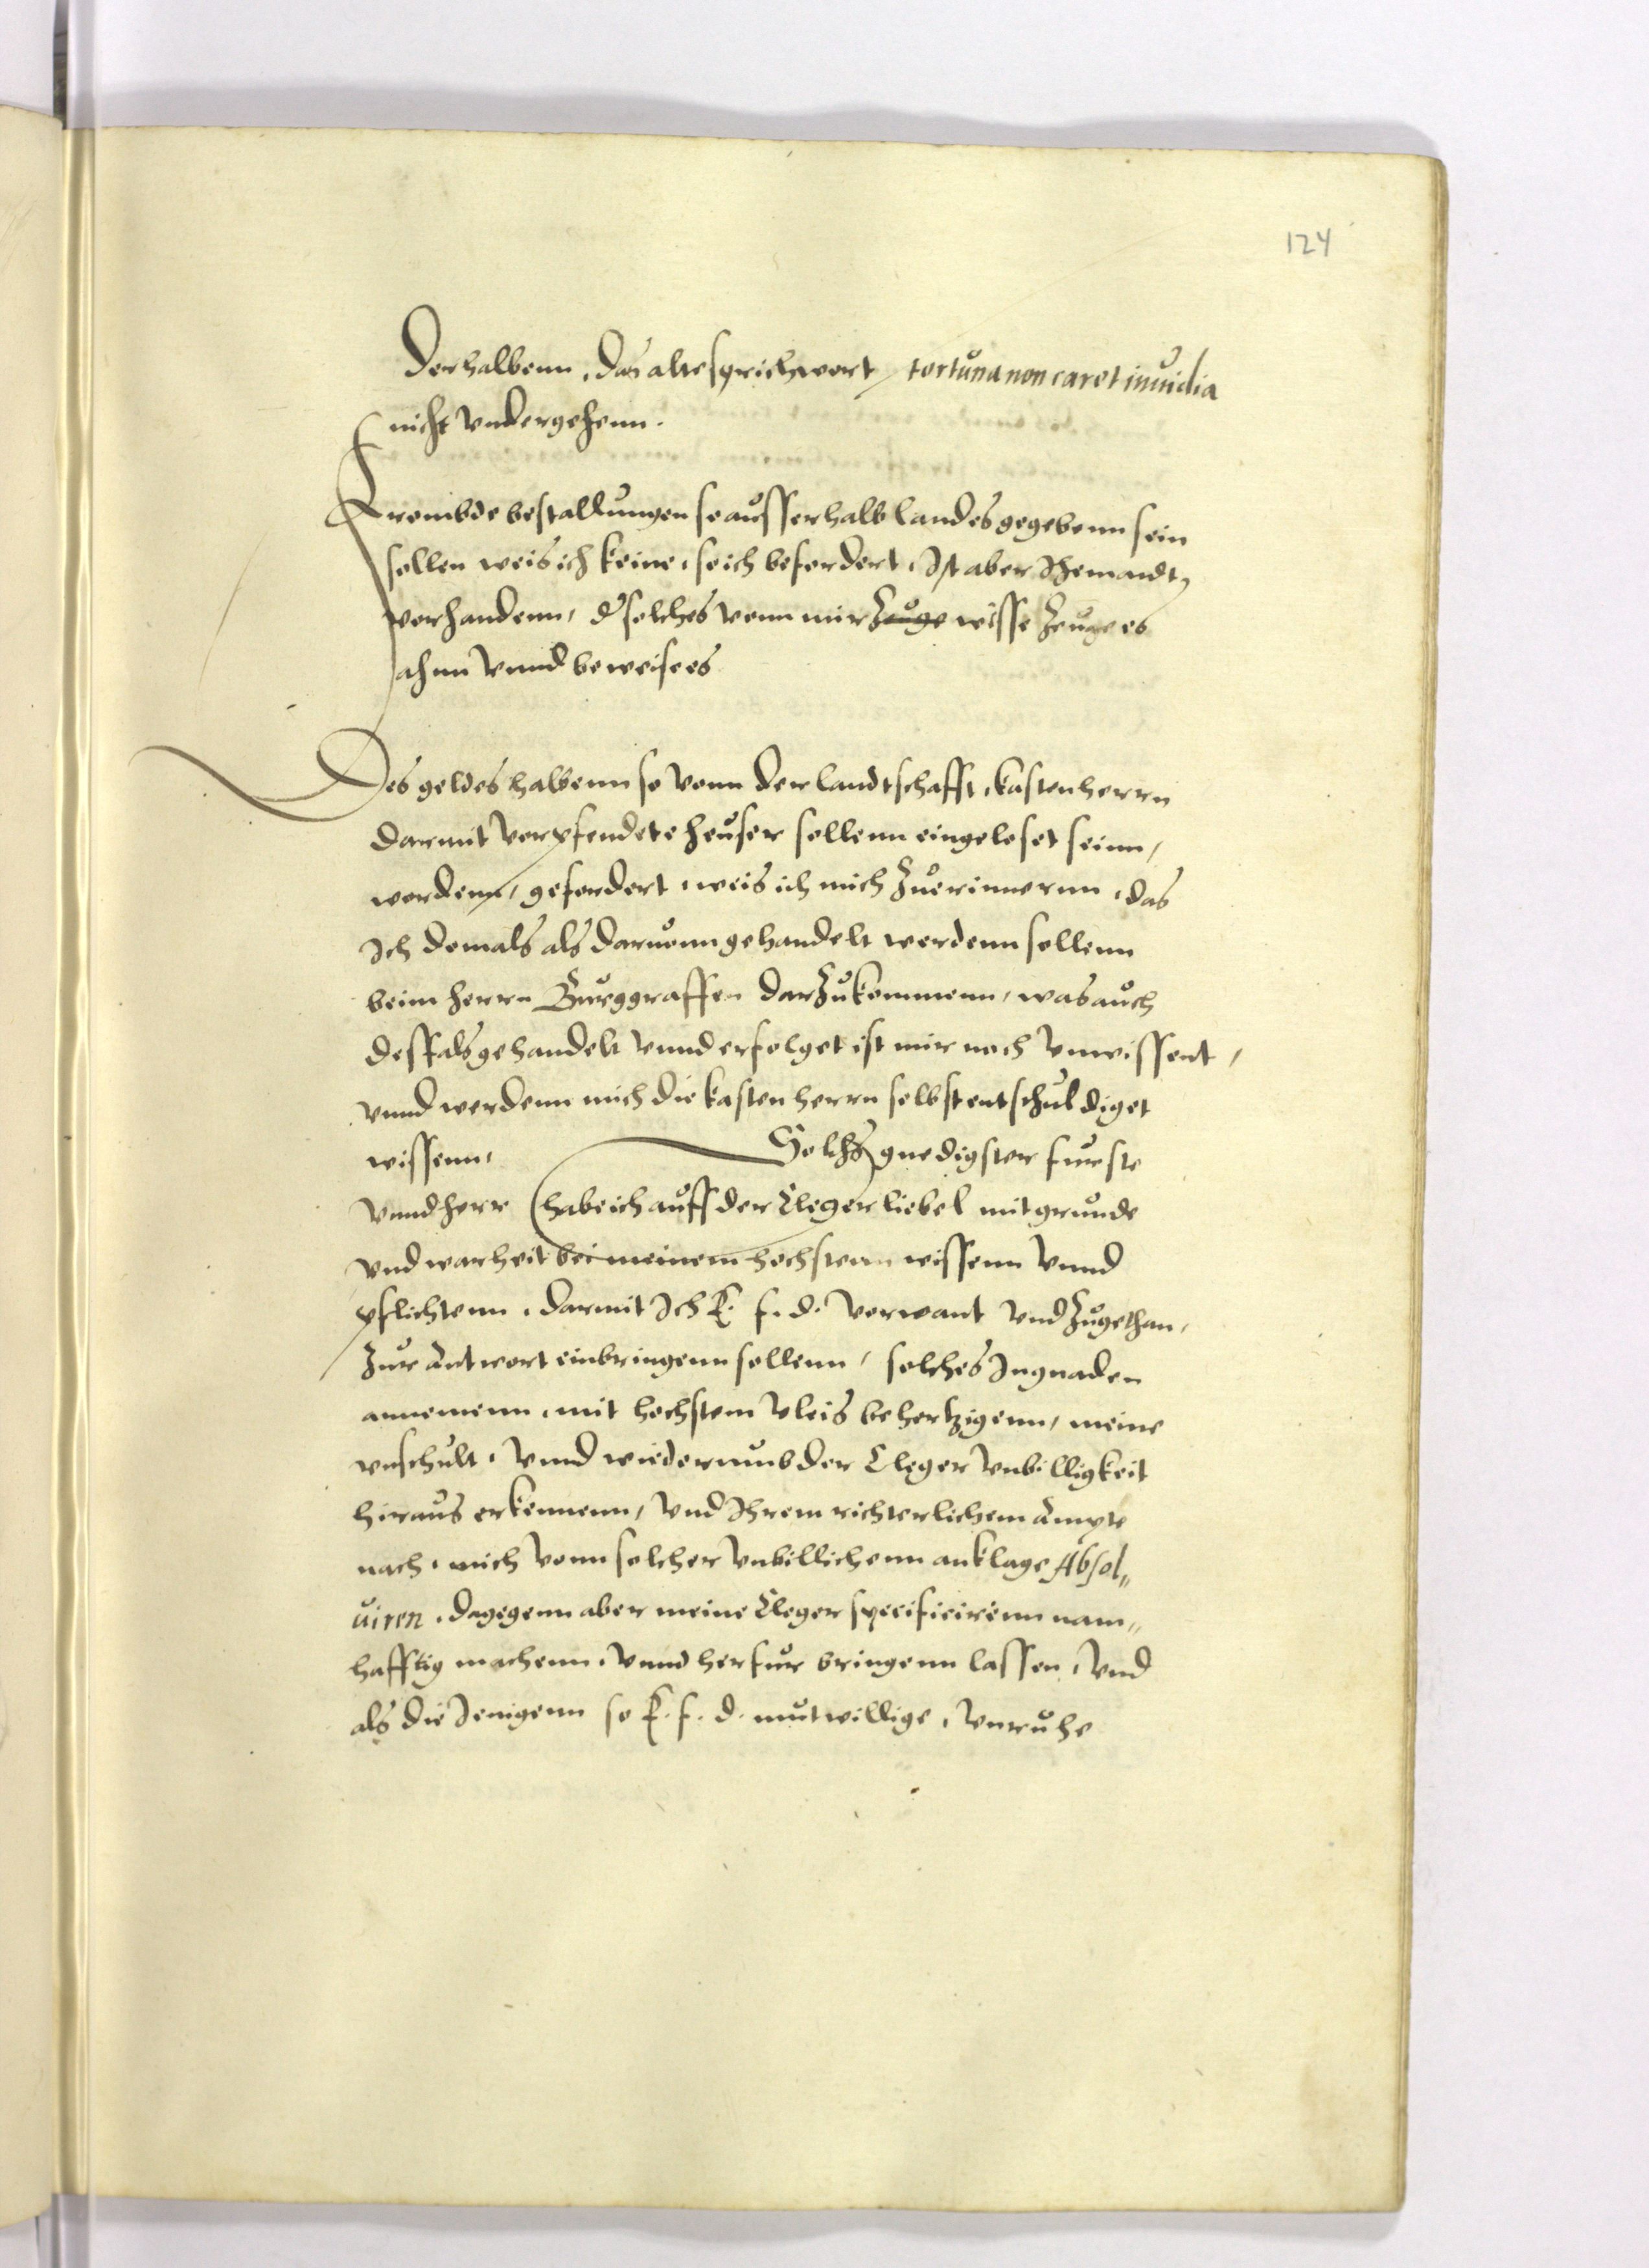 124
Derhalbenn, das alte sprichwort / fortuna non caret inuidia
nicht vndergehenn.
Frembde bestallungen so ausserhalb landes gegebenn sein
sollen weis ich keine, so ich befordert, Ist aber Jhemandt
vorhandenn, d solches vonn mir zeuge wisse zeuge es
ahnn vnnd beweise es
Des geldes halbenn so vonn der landtschafft, kastenherrn
darmit verpfendete heuser sollenn eingeloset seinn,
wordenn, gefordert, weis ich mich zuerinnernn, das
Ich domals als daruonn gehandelt werdenn sollenn
beim herrn Burggraffen darzukommenn, was auch
desfals gehandelt vnnd erfolget ist mir noch vnwissent,
vnnd werdenn mich die kastenherrn selbst entschuldiget
wissenn, Solchs gnedigster furste
vnnd herr habe ich auff der Cleger liebel mit grunde
vnd warheit bei meinem hochstenn wissenn vnnd
pflichtenn, darmit Ich E. f. d. verwant vnd zugethan,
zur antwort einbringenn sollenn, solches In gnaden
annemenn, mit hochstem vleis behertzigenn, meine
vnschult, vnnd wiederumb der Cleger vnbilligkeit
hiraus erkennenn, vnd Ihrem richterlichem Ampte
nach, mich vonn solcher vnbillichenn anklage Absol„
uiren, dagegenn aber meine Cleger specificirenn nam„
hafftig machenn, vnnd herfur bringenn lassen, vnd
als die Jenigenn so E. f. d. mutwillige, vnruhe